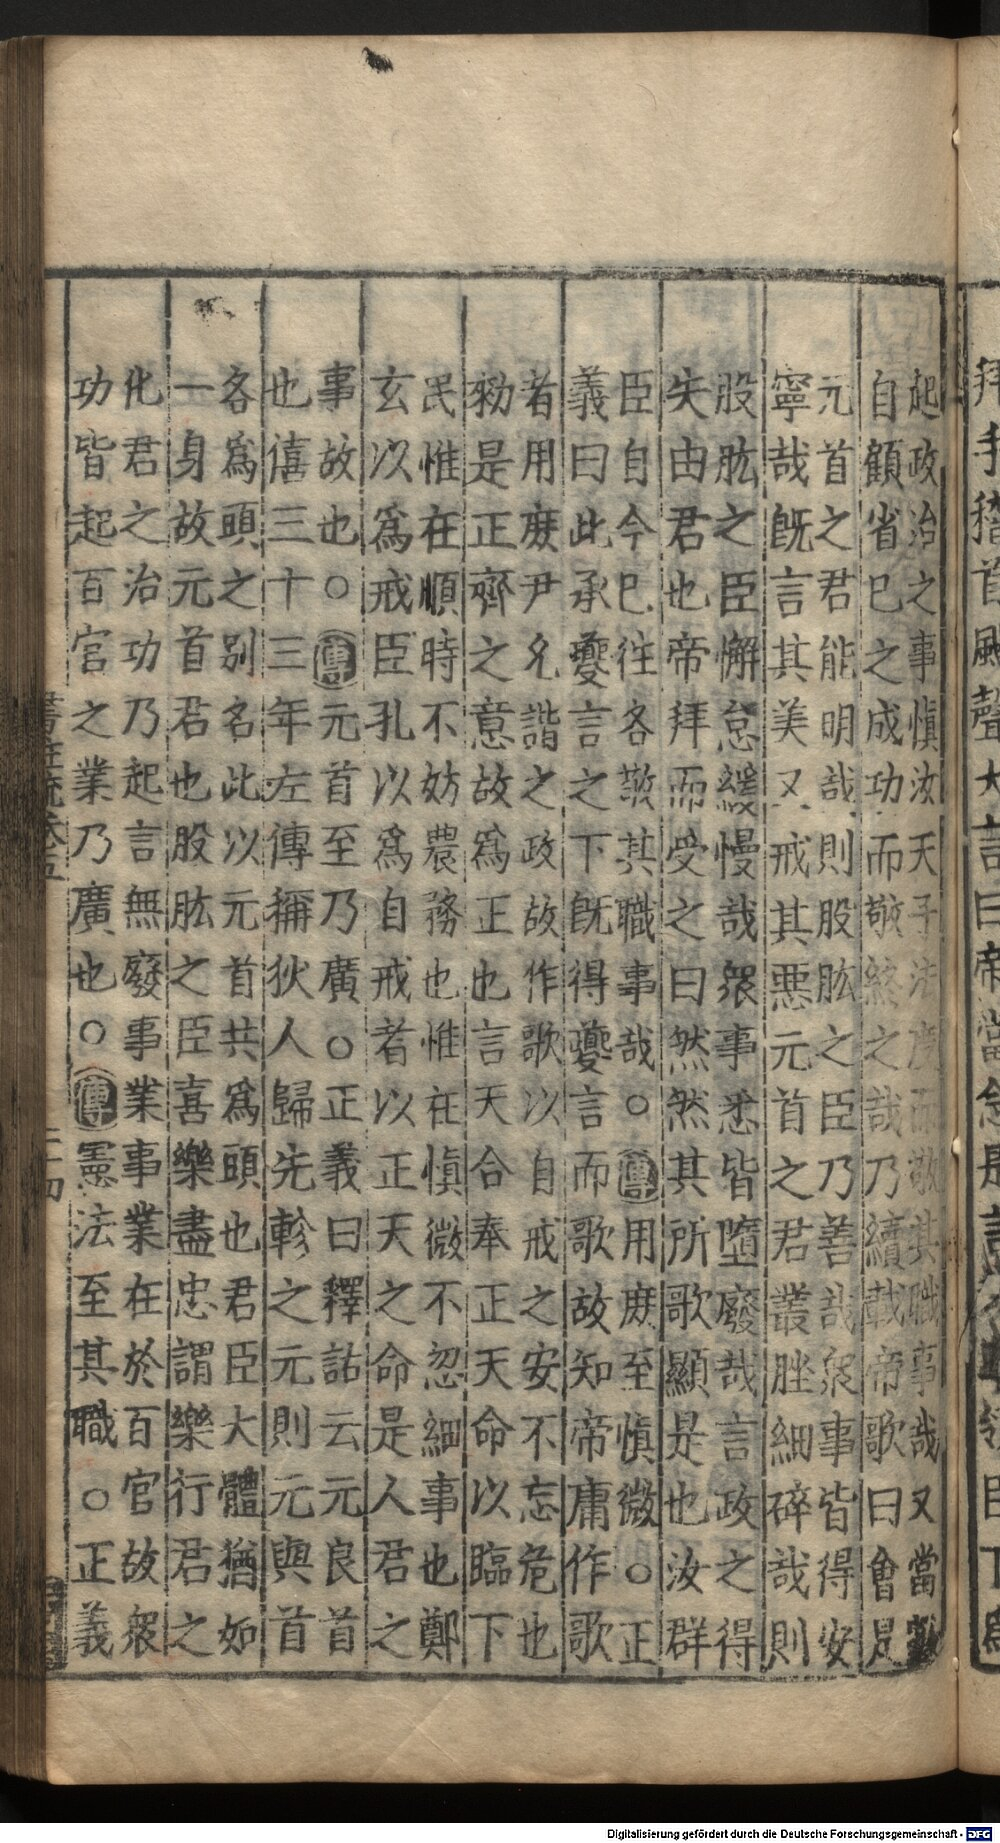 起政治之事慎汝天子法度而敬其職事哉又當數
自顧省已之成功而敬終之哉乃續載帝歌曰會是
元首之君能明哉則股肱之臣乃善哉眾事皆得安
寧哉既言其美又戒其惡元首之君叢脞細碎哉則
股肱之臣懈怠緩慢哉眾事悉皆墮廢哉言政之得
失由君也帝拜而受之曰然然其所歌顯是也汝群
臣自今已往各敬其職事哉○傳用庶至慎微○正
義曰此承夔言之下既得夔言而歌故知帝庸作歌
者用庶尹允諧之政故作歌以自戒之安不忘危也
勑是正齊之意故為正也言天合奉正天命以臨下
民惟在順時不妨農務也惟在慎微不忽細事也鄭
玄以爲戒臣孔以爲自戒者以正天之命是人君之
事故也○傳元首至乃廣○正義曰釋詁云元良首
也僖三十三年左傳稱狄人歸先軫之元則元與首
各爲頭之别名此以元首共爲頭也君臣大體猶如
一身故元首君也股肱之臣喜樂盡忠謂樂行君之
化君之治功乃起言無廢事業事業在於百官故眾
功皆起百官之業乃廣也○傳憲法至其職○正義
書註疏卷五
三四
拜手稽首颺聲大言曰帝當念是言
Digitalisierung gefördert durch die Deutsche Forschungsgemeinschaft - DFG